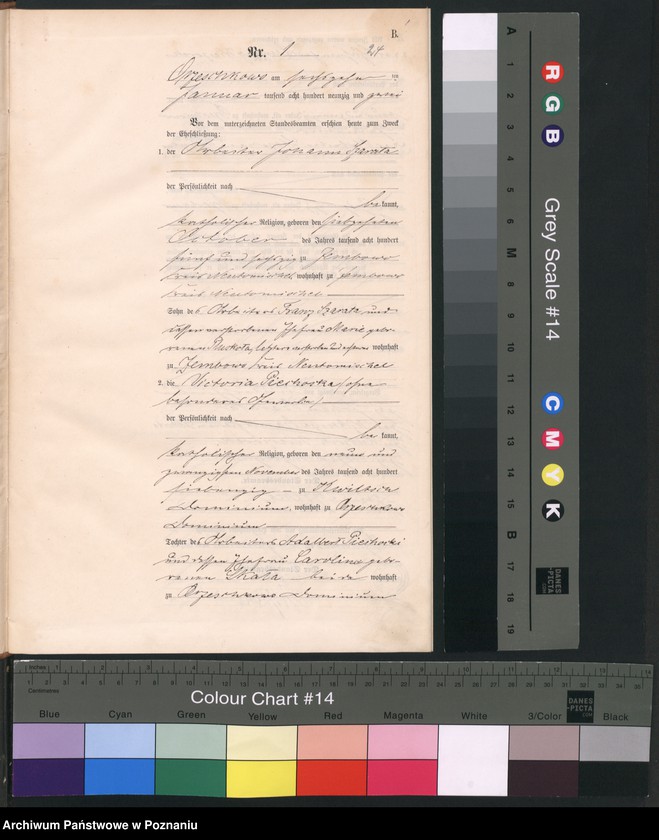 B.
Nr. 1
24
Orzeschkowo am sechszehn ten
Januar tausend acht hundert neunzig und zwei
Vor dem unterzeichneten Standesbeamten erschien heute zum Zweck
der Eheschließung:
1. der Arbeiter Johann
der Persönlichkeit nach
be kannt,
katholischer Religion, geboren den siebzehnten
October des Jahres tausend acht hundert
fünf und sechszig zu
Kreis Neutomischel, wohnhaft zu
Kreis Neutomischel
Sohn des Arbeiters Franz und
dessen verstorbenen Ehefrau Marie gebo-
renen wohnhaft
zu Kreis Neutomischel
2. die Victoria Piechocka ohne
besonderes Gewerbe
der Persönlichkeit nach
be kannt,
katholischer Religion, geboren den neun und
zwanzigsten November des Jahres tausend acht hundert
siebenzig zu Kwiltsch
Dominium, wohnhaft zu Orzeschkowo
Dominium
Tochter des Arbeiters Adalbert Piechocki
und dessen Ehefrau Caroline gebo-
renen Skata beide wohnhaft
zu Orzeschkowo Dominium
A 1 2 3 4 5 6 M 8 9 10 11 12 13 14 15 B 17 18 19
R G B
Grey Scale #14
C M Y K
DANES
-PICTA
.COM
Inches 1 2 3 4 5 6 7 8 9 10 11 12 13 14
1 2 3 4 5 6 7 8 9 10 11 12 13 14 15 16 17 18 19 20 21 22 23 24 25 26 27 28 29 30 31 32 33 34 35
Centimetres
Colour Chart #14
DANES
-PICTA
.COM
Blue Cyan Green Yellow Red Magenta White 3/Color Black
Archiwum Państwowe w Poznaniu